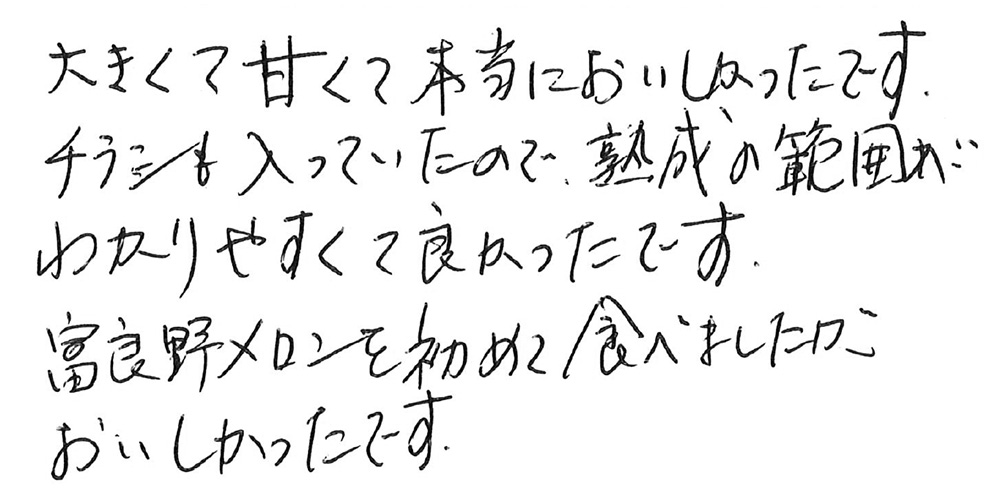 大きくて甘くて本当においしかったです.
チラシも入っていたので、熟成の範囲が
わかりやすくて良かったです.
富良野メロンを初めて食べましたが
おいしかったです.